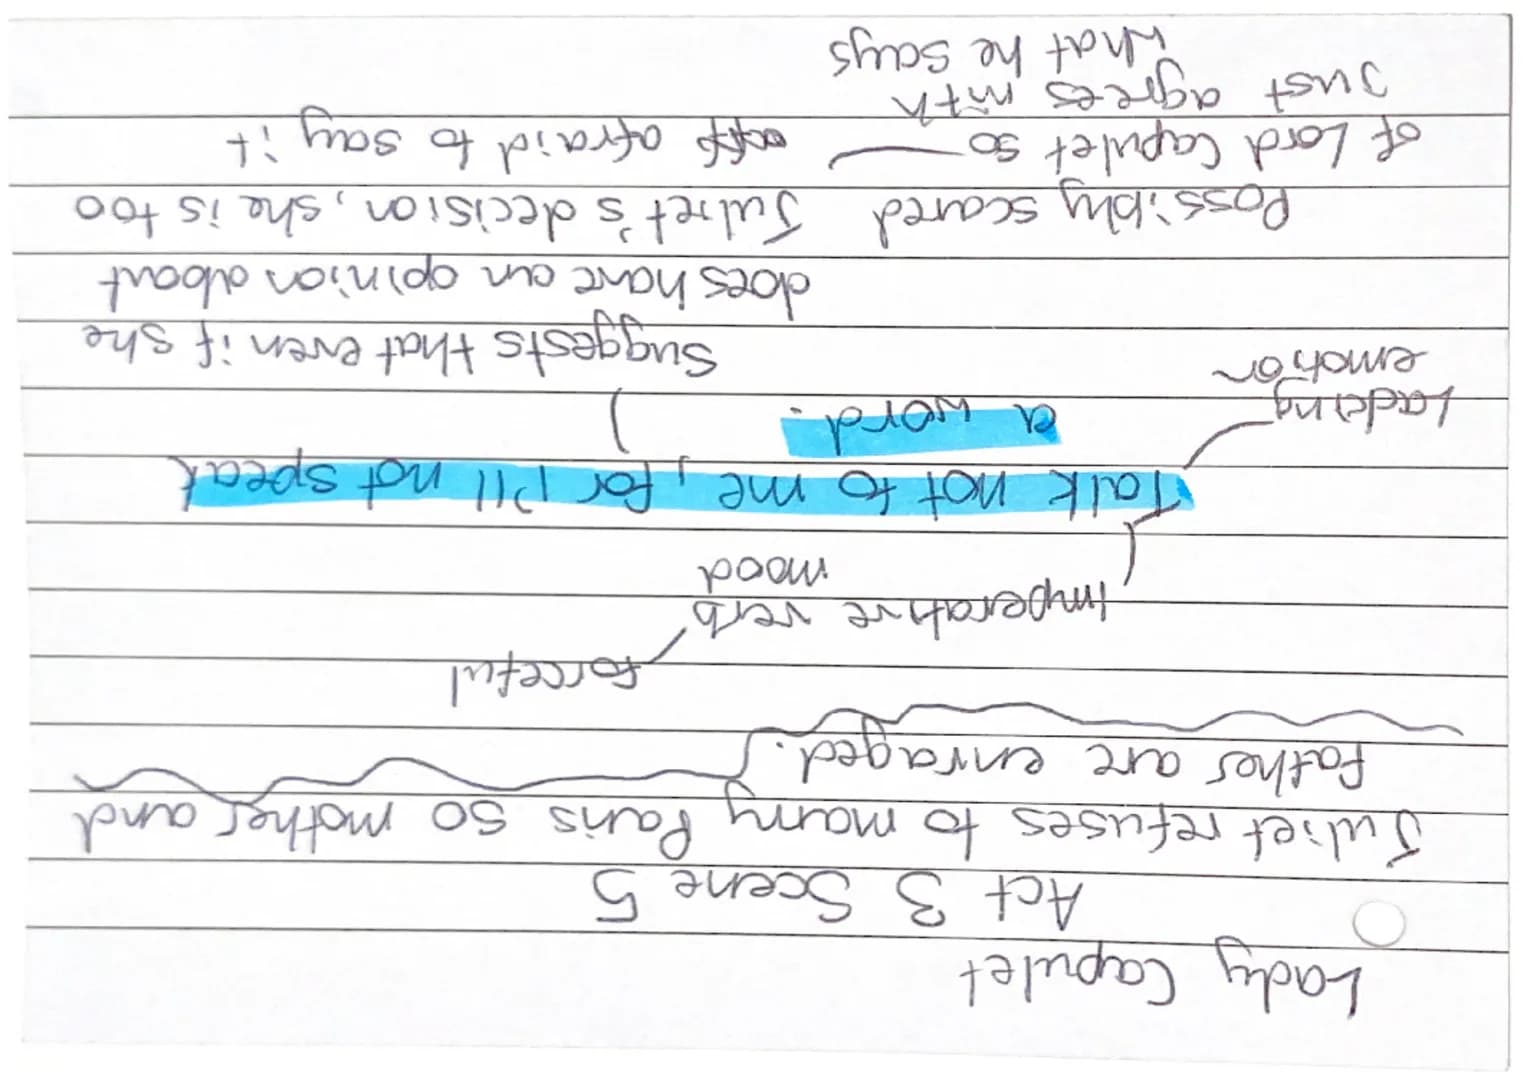 Lady Capulet
Act 3 Scene 5
Juliet refuses to marry Paris so mother and
father are enraged.
forceful
Imperative verb
mood
Talk not to me, for I'll not speak
a word.
Lacking
emotion
Suggests that even if she
does have an opinion about
Juliet's decision, she is too
afraid to say it
Possibly scared
of Lord Capulet so
Just agrees with
what he says